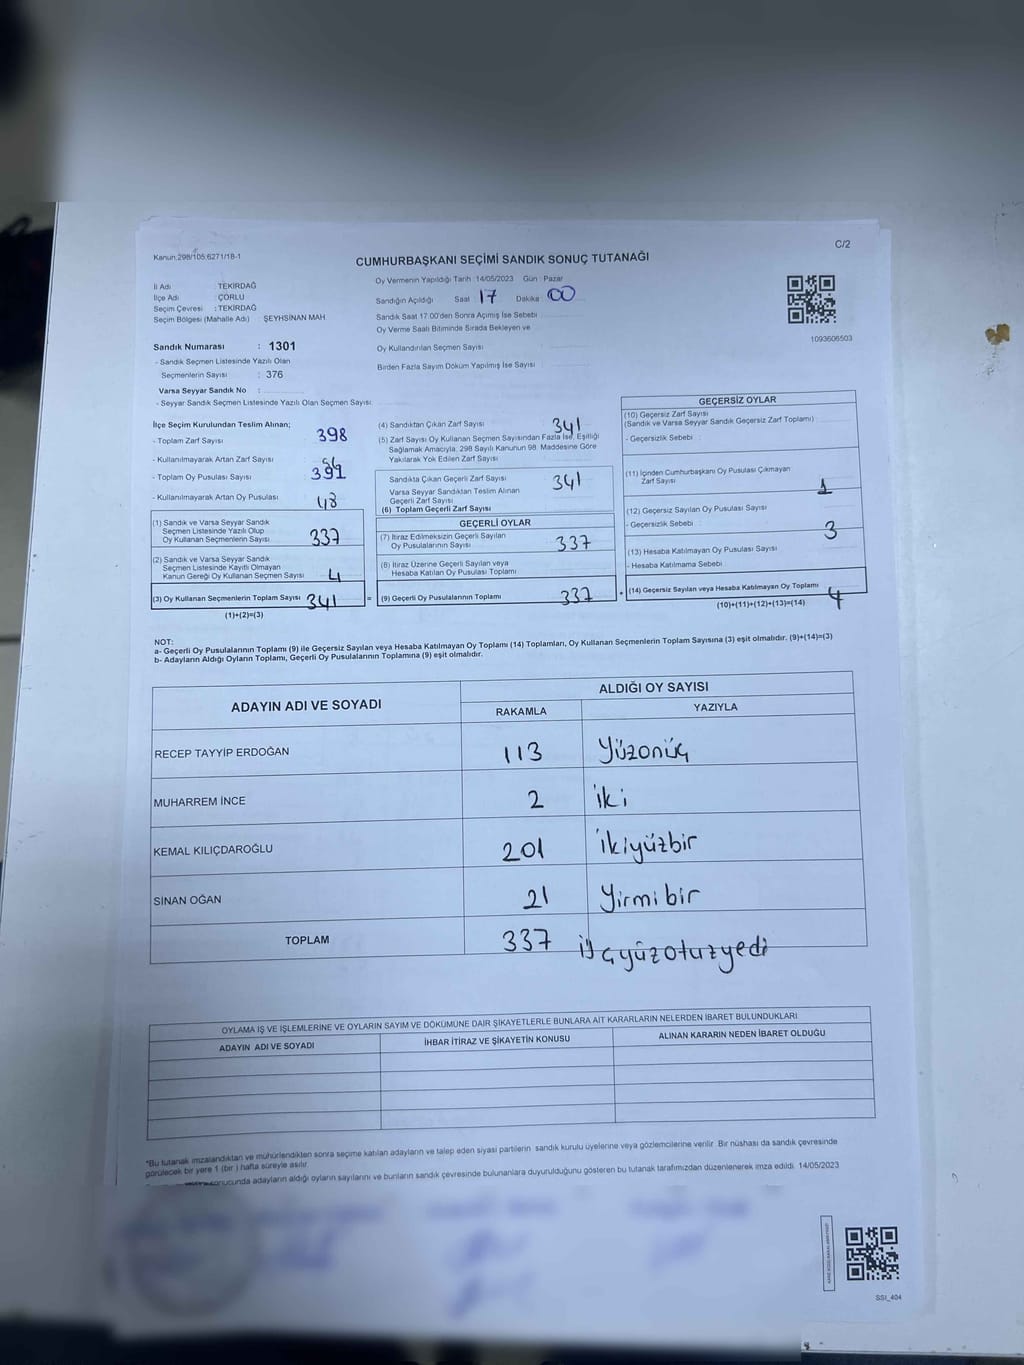 Kanun:298/105;6271/18-1
C/2
CUMHURBAŞKANI SEÇİMİ SANDIK SONUÇ TUTANAĞI
İl Adı : TEKİRDAĞ
İlçe Adı : ÇORLU
Seçim Çevresi : TEKİRDAĞ
Seçim Bölgesi (Mahalle Adı) : ŞEYHSİNAN MAH
Oy Vermenin Yapıldığı Tarih :14/05/2023 Gün : Pazar
Sandığın Açıldığı Saat : 17 Dakika : 00
Sandık Saat 17.00'den Sonra Açımış İse Sebebi
Oy Verme Saati Bitiminde Sırada Bekleyen ve
Oy Kullandırılan Seçmen Sayısı :
Birden Fazla Sayım Döküm Yapılmış İse Sayısı
1093606503
Sandık Numarası : 1301
- Sandık Seçmen Listesinde Yazılı Olan
Seçmenlerin Sayısı : 376
Varsa Seyyar Sandık No :
- Seyyar Sandık Seçmen Listesinde Yazılı Olan Seçmen Sayısı:
İlçe Seçim Kurulundan Teslim Alınan;
- Toplam Zarf Sayısı 398
- Kullanılmayarak Artan Zarf Sayısı
- Toplam Oy Pusulası Sayısı 391
- Kullanılmayarak Artan Oy Pusulası 48
(1) Sandık ve Varsa Seyyar Sandık
Seçmen Listesinde Yazılı Olup
Oy Kullanan Seçmenlerin Sayısı 337
(2) Sandık ve Varsa Seyyar Sandık
Seçmen Listesinde Kayıtlı Olmayan
Kanun Gereği Oy Kullanan Seçmen Sayısı 4
(3) Oy Kullanan Seçmenlerin Toplam Sayısı 341
(1)+(2)=(3)
(4) Sandıktan Çıkan Zarf Sayısı 341
(5) Zarf Sayısı Oy Kullanan Seçmen Sayısından Fazla İse, Eşitliği
Sağlamak Amacıyla; 298 Sayılı Kanunun 98. Maddesine Göre
Yakılarak Yok Edilen Zarf Sayısı
Sandıkta Çıkan Geçerli Zarf Sayısı 341
Varsa Seyyar Sandıktan Teslim Alınan
Geçerli Zarf Sayısı
(6) Toplam Geçerli Zarf Sayısı
GEÇERLİ OYLAR
(7) İtiraz Edilmeksizin Geçerli Sayılan
Oy Pusulalarının Sayısı 337
(8) İtiraz Üzerine Geçerli Sayılan veya
Hesaba Katılan Oy Pusulası Toplamı
= (9) Geçerli Oy Pusulalarının Toplamı 337
GEÇERSİZ OYLAR
(10) Geçersiz Zarf Sayısı
(Sandık ve Varsa Seyyar Sandık Geçersiz Zarf Toplamı)
- Geçersizlik Sebebi :
(11) İçinden Cumhurbaşkanı Oy Pusulası Çıkmayan
Zarf Sayısı 1
(12) Geçersiz Sayılan Oy Pusulası Sayısı
- Geçersizlik Sebebi : 3
(13) Hesaba Katılmayan Oy Pusulası Sayısı
- Hesaba Katılmama Sebebi
+ (14) Geçersiz Sayılan veya Hesaba Katılmayan Oy Toplamı 4
(10)+(11)+(12)+(13)=(14)
NOT:
a- Geçerli Oy Pusulalarının Toplamı (9) ile Geçersiz Sayılan veya Hesaba Katılmayan Oy Toplamı (14) Toplamları, Oy Kullanan Seçmenlerin Toplam Sayısına (3) eşit olmalıdır. (9)+(14)=(3)
b- Adayların Aldığı Oyların Toplamı, Geçerli Oy Pusulalarının Toplamına (9) eşit olmalıdır.
ADAYIN ADI VE SOYADI
ALDIĞI OY SAYISI
RAKAMLA YAZIYLA
RECEP TAYYİP ERDOĞAN 113 Yüzonüç
MUHARREM İNCE 2 iki
KEMAL KILIÇDAROĞLU 201 ikiyüzbir
SİNAN OĞAN 21 Yirmibir
TOPLAM 337 üçyüzotuzyedi
OYLAMA İŞ VE İŞLEMLERİNE VE OYLARIN SAYIM VE DÖKÜMÜNE DAİR ŞİKAYETLERLE BUNLARA AİT KARARLARIN NELERDEN İBARET BULUNDUKLARI
ADAYIN ADI VE SOYADI İHBAR İTİRAZ VE ŞİKAYETİN KONUSU ALINAN KARARIN NEDEN İBARET OLDUĞU
*Bu tutanak imzalandıktan ve mühürlendikten sonra seçime katılan adayların ve talep eden siyasi partilerin sandık kurulu üyelerine veya gözlemcilerine verilir. Bir nüshası da sandık çevresinde
görülecek bir yere 1 (bir ) hafta süreyle asılır.
sonucunda adayların aldığı oyların sayılarını ve bunların sandık çevresinde bulunanlara duyurulduğunu gösteren bu tutanak tarafımızdan düzenlenerek imza edildi. 14/05/2023
SSİ_404